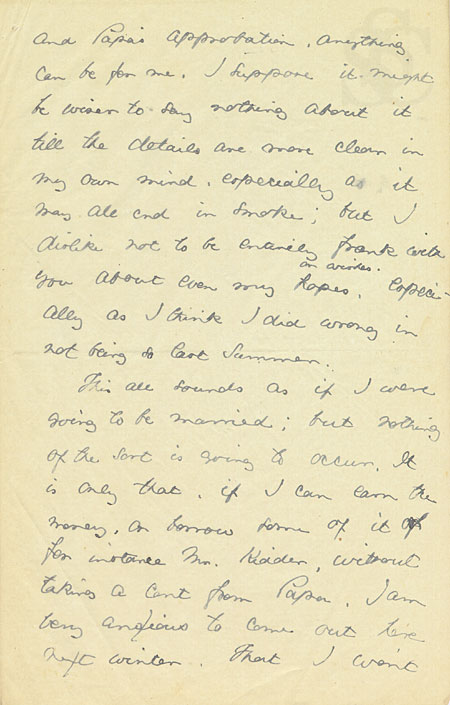 and Papa's approbation, anything
can be for me. I suppose it might
be wiser to say nothing about it
till the details are more clear in
my own mind, especially as it
may all end in smoke; but I
dislike not to be entirely frank with
or wishes.
you about even my hopes, especi-
ally as I think I did wrong in
not being so last Summer.
This all sounds as if I were
going to be married; but nothing
of the sort is going to occur. It
is only that, if I can earn the
money, or borrow some of it of
for instance Mr. Kidder, without
taking a cent from Papa, I am
very anxious to come out here
next winter. That I won't